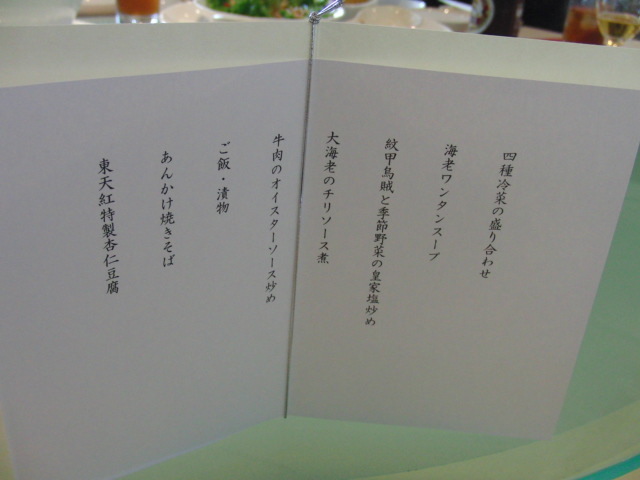 四種冷菜の盛り合わせ
海老ワンタンスープ
紋甲烏賊と季節野菜の皇家塩炒め
大海老のチリソース煮
牛肉のオイスターソース炒め
ご飯・漬物
あんかけ焼きそば
東天紅特製杏仁豆腐